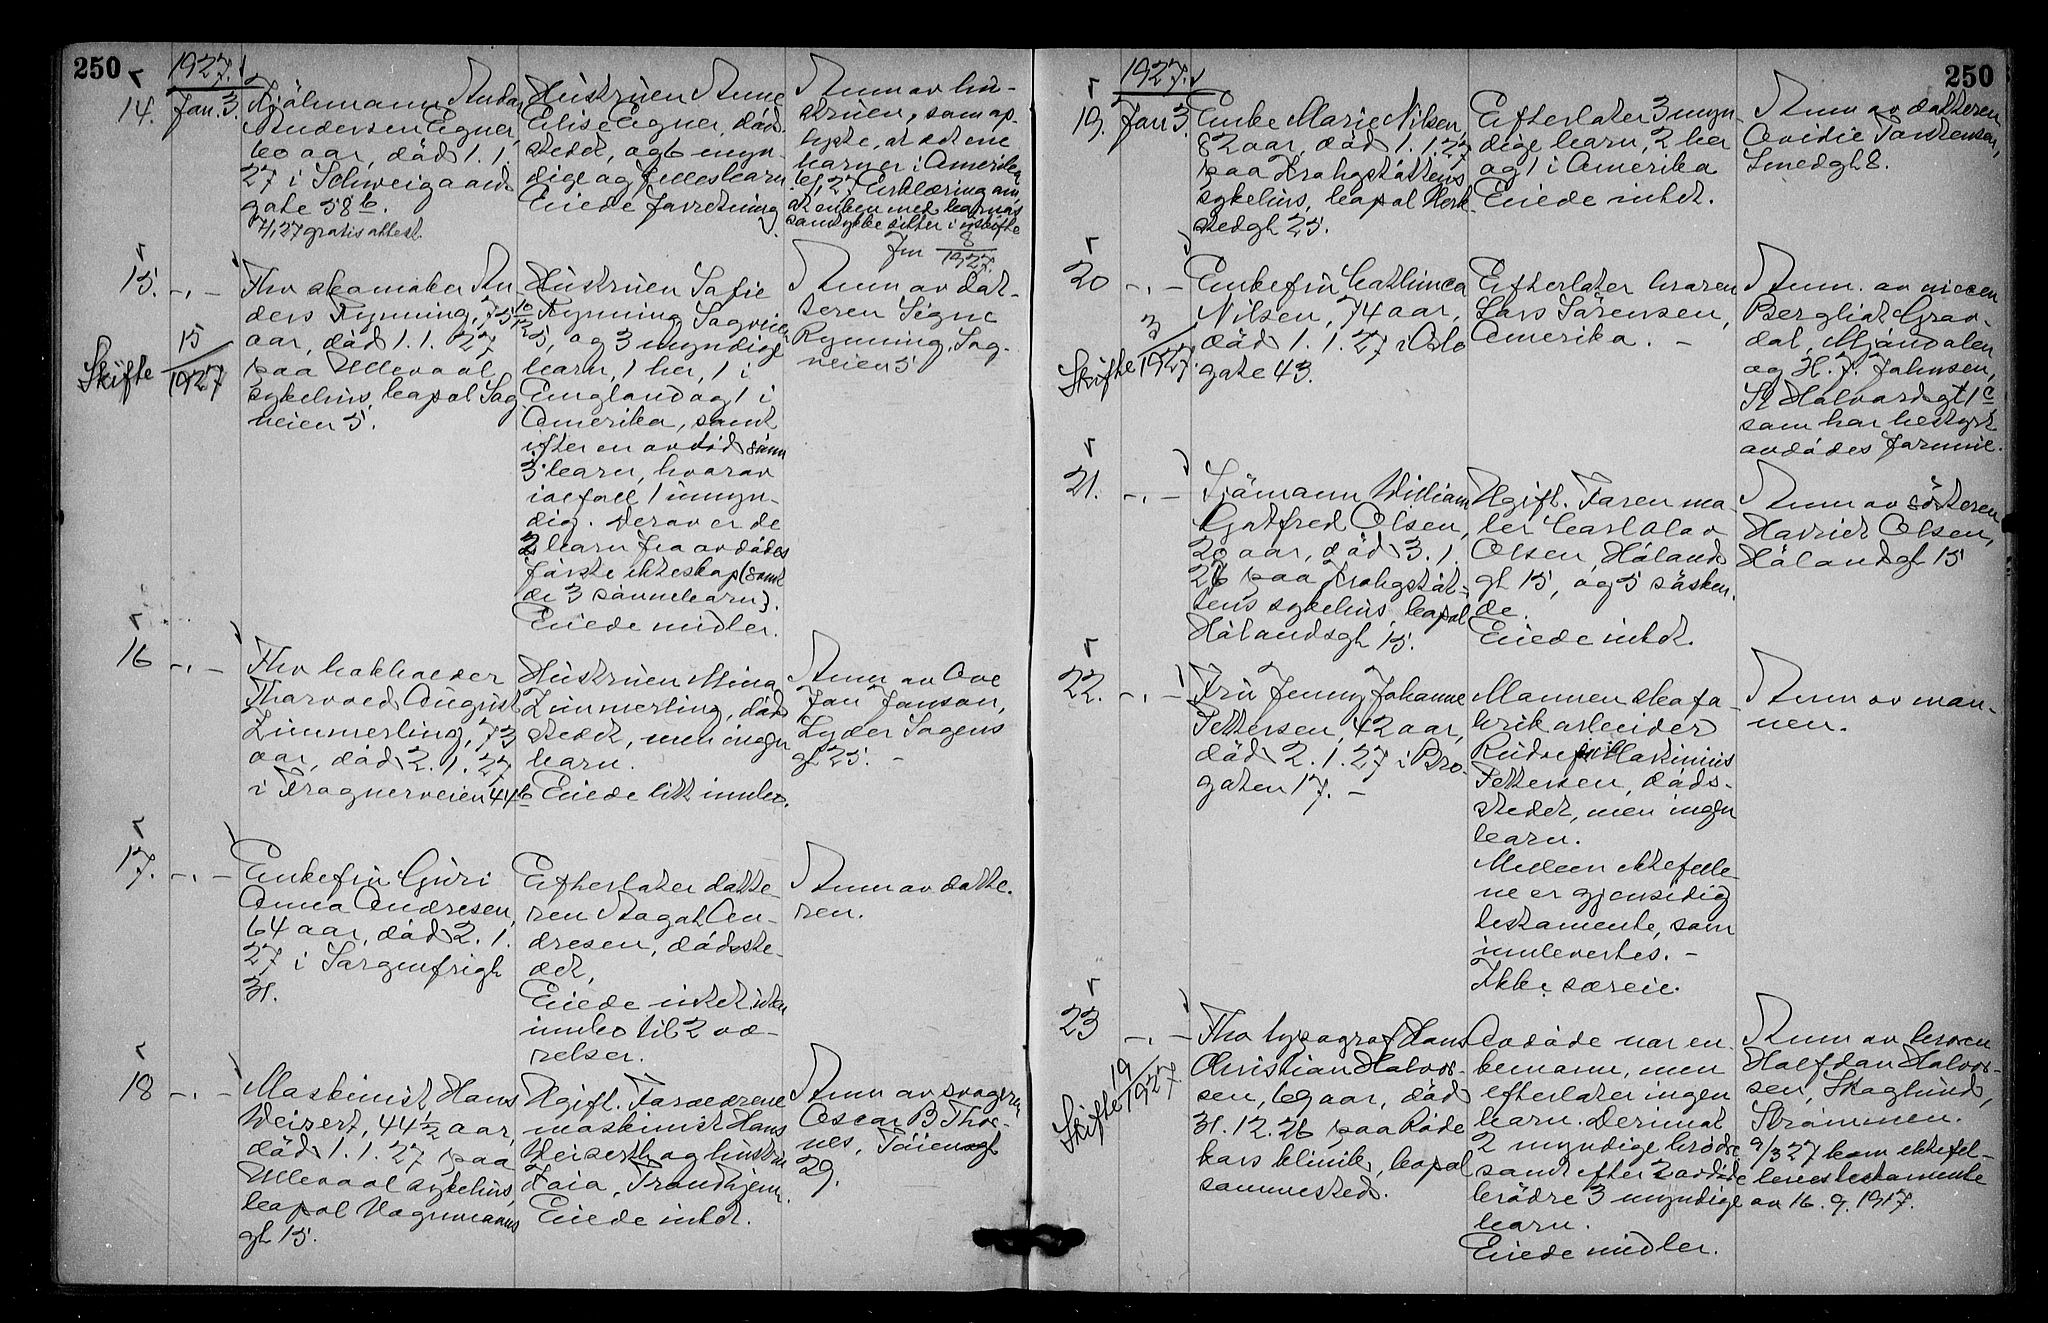 250
1927.
14. Jan. 3.
Kjöhmann Andor
Andersen Egner,
60 aar, död 1. 1.
27 i Schweigaards
gate 58b.
7/1 27 gratis attest.
Hustruen Anne
Elise Egner, död-
stedet, og 6 myn-
dige og felles barn
Eiede forretning
Anm av hu-
struen, som op-
lyste, at det ene
barn er i Amerika
6/1 27 Erklæring om
at enken med barnas
samtykke sitter i uskifte
Jnr 8/1927.
15. -,-
Skifte 15/1927
Fhv skomaker An
ders Rynning, 75 10/12
aar, död 1. 1. 27
paa Ullevaal
sykehus, bopal Sag
veien 5.
Hustruen Sofie
Rynning Sagveien
5, og 3 myndige
barn, 1 her, 1 i
England og 1 i
Amerika, samt
efter en avdöd sönn
3 barn, hvorav
ialfall 1 umyn-
dig. Derav er de
2 barn fra avdödes
förste ekteskap (samt
de 3 sönnebarn).
Eiede midler.
Anm av dat-
teren Signe
Rynning, Sag-
veien 5
16 -,-
Fhv bokholder
Thorvald August
Zimmerling, 73
aar, död 2. 1. 27
i Frognerveien 44b
Hustruen Mina
Zimmerling, död
stedet, men ingen
barn.
Eiede litt innbo.
Anm av Ove
Jan Jonson,
Lyder Sagens
gt 25. -
17. -,-
Enkefru Guri
Anna Andresen,
64 aar, död 2. 1.
27 i Sorgenfrigt
31.
Efterlater datte-
ren Aagot An-
dresen, dödsste-
det,
Eiede intet uten
innbo til 2 væ-
relser.
Anm av datte-
ren.
18 -,-
Maskinist Hans
Weisert, 44 1/2 aar,
död 1. 1. 27 paa
Ullevaal sykehus,
bopal Wagnmanns
gt 15.
Ugift. Foreldrene
maskinist Hans
Weiserth og hustru
Kaia, Trondhjem.
Eiede intet.
Anm av svogeren
Oscar B Thor-
nes, Töiengt
29.
250
1927.
19. Jan 3.
Enke Marie Nilsen,
82 aar, död 1. 1 27
paa Krohgstöttens
sykehus, bopal Herk
stedgt 25.
Efterlater 3 myn
dige barn, 2 her
og 1 i Amerika
Eiede intet.
Anm av datteren
Ovidie Torstensen,
Smedgt 8.
20 -,-
Skifte 3/1927
Enkefru Cathinca
Nilsen, 74 aar,
död 1. 1. 27 i Oslo
gate 43.
Efterlater broren
Lars Sörensen,
Amerika. -
Anm. av niecen
Bergliot Grav-
dal, Mjöndalen
og H. J. Johnsen,
St Halvardsgt 1 c
som har bestyrt
avdödes formue.
21. -,-
Sjömann William
Gotfred Olsen,
20 aar, död 3. 1.
26 paa Krohgstöt-
tens sykehus, bopal
Hölandsgt 15.
Ugift. Faren ma-
ler Carl Olav
Olsen, Höland
gt 15, og 5 sösken-
de.
Eiede intet.
Anm av sösteren
Harriet Olsen,
Hölandgt 15
22. -,-
Fru Jenny Johanne
Pettersen, 42 aar,
död 2. 1. 27 i Bro-
gaten 17. -
Mannen skofa-
brikarbeider
Rudolf Martinius
Pettersen, döds-
stedet, men ingen
barn.
Mellem ektefelle-
ne er gjensidig
testamente, som
innlevertes. -
Ikke særeie.
Anm av man-
nen.
23 -,-
Skifte 19/1927
Fhv typograf Hans
Christian Halvor-
sen, 69 aar, död
31. 12. 26 paa Röde
kors klinik, bopal
sammesteds.
Avdöde var en-
kemann, men
efterlater ingen
barn. Derimot
2 myndige brödre
samt efter 2 avdöde
brödre 3 myndige
barn.
Eiede midler.
Anm av broren
Halfdan Halvor-
sen, Skoglund,
Strömmen.
9/3 27 kom ektefel-
lenes testamente
av 16. 9. 1917.